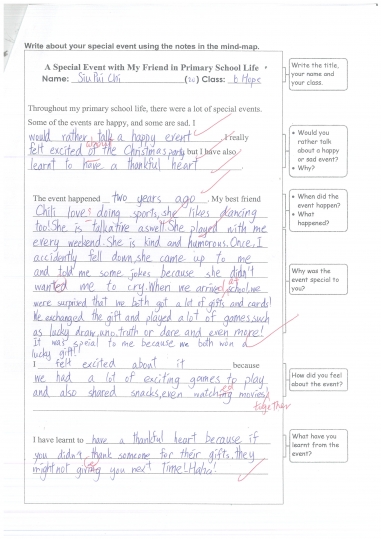 Write about your special event using the notes in the mind-map.
A Special Event with My Friend in Primary School Life
Name: Siu Pui Chi Class: 6 Hope
Throughout my primary school life, there were a lot of special events.
Some of the events are happy, and some are sad. I
would rather talk a happy event! I really
about
felt excited at the Christmas party but I have also
learnt to have a thankful heart
The event happened two years ago. My best friend
Chili loves doing sports, she likes dancing
too! She is talkative aswell. She played with me
every weekend. She is kind and humorous. Once, I
accidently fell down, she came up to me
and told me some jokes because she didn't
wanted me to cry. When we arrived at school, we
were surprised that we both got a lot of gifts and cards!
We exchanged the gift and played a lot of games, such
as lucky draw, uno, truth or dare and even more!
It was special to me because we both won a
lucky gift!!
I felt excited about it because
we had a lot of exciting games to play
and also shared snacks, even watched movies
together
I have learnt to have a thankful heart because if
you didn't thank someone for their gifts, they
might not giving you next time! Haha!
Write the title,
your name and
your class.
• Would you
rather talk
about a happy
or sad event?
• Why?
• When did the
event happen?
• What
happened?
Why was the
event special to
you?
How did you feel
about the event?
What have you
learnt from the
event?